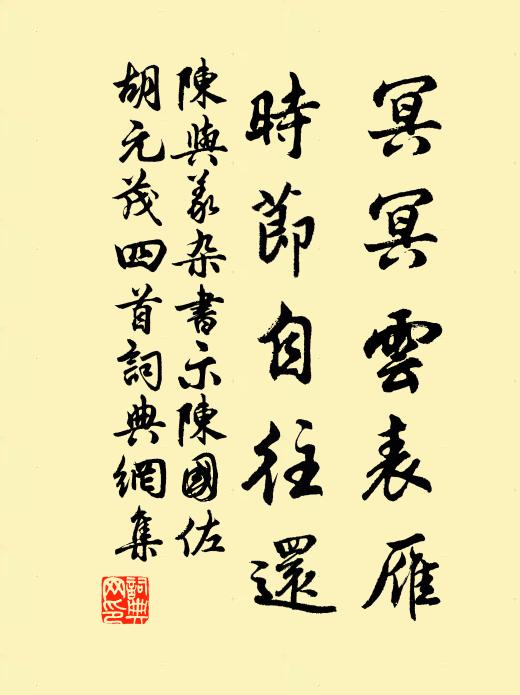 冥冥雲表雁
時節自往還
陳與義杂書示陳國佐
胡元茂四首詞典網集
詞典网印